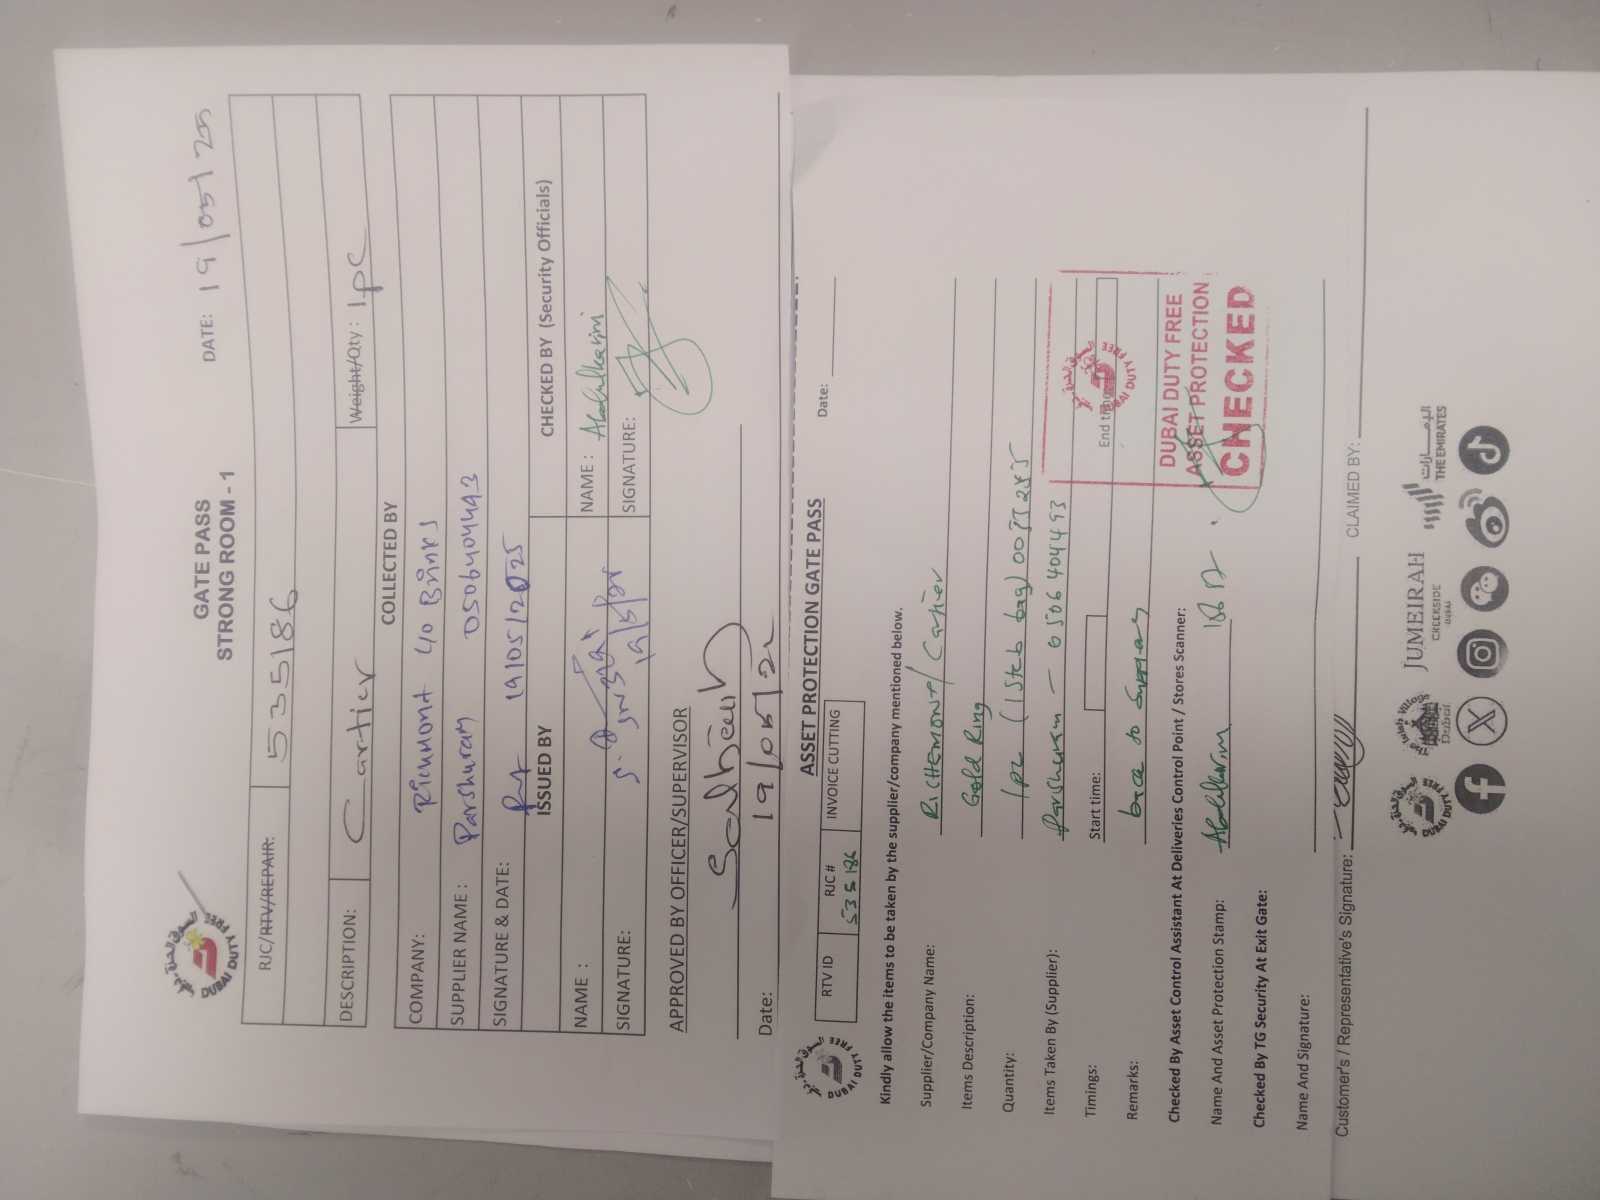 السوق الحرة دبي
DUBAI DUTY FREE
GATE PASS
STRONG ROOM - 1
DATE: 19/05/25
RJC/RTV/REPAIR: 535186
DESCRIPTION: Cartier Weight/Qty: 1pc
COLLECTED BY
COMPANY: Richmont 40 Brinks
SUPPLIER NAME: Parshuram 0506404493
SIGNATURE & DATE: 19/05/2025
ISSUED BY CHECKED BY (Security Officials)
NAME : NAME : Abdulkarim
SIGNATURE: 19/5/25 SIGNATURE:
APPROVED BY OFFICER/SUPERVISOR
Date: 19/05/25
DUBAI DUTY FREE
ASSET PROTECTION GATE PASS
RTV ID RJC # 535186 INVOICE CUTTING Date:
Kindly allow the items to be taken by the supplier/company mentioned below.
Supplier/Company Name: RICHEMONT/Cartier
Items Description: Gold Ring
Quantity: 1pc (1 Steb bag)
Items Taken By (Supplier): Parshuram — 0506404493
Timings: Start time: End time:
Remarks: back to Supplier
DUBAI DUTY FREE
DUBAI DUTY FREE
ASSET PROTECTION
CHECKED
Checked By Asset Control Assistant At Deliveries Control Point / Stores Scanner:
Name And Asset Protection Stamp: Abdulkarim
Checked By TG Security At Exit Gate:
Name And Signature:
Customer's / Representative's Signature: CLAIMED BY:
DUBAI DUTY FREE
The Irish Village
Dubai
JUMEIRAH
CREEKSIDE
DUBAI
الإمارات
THE EMIRATES